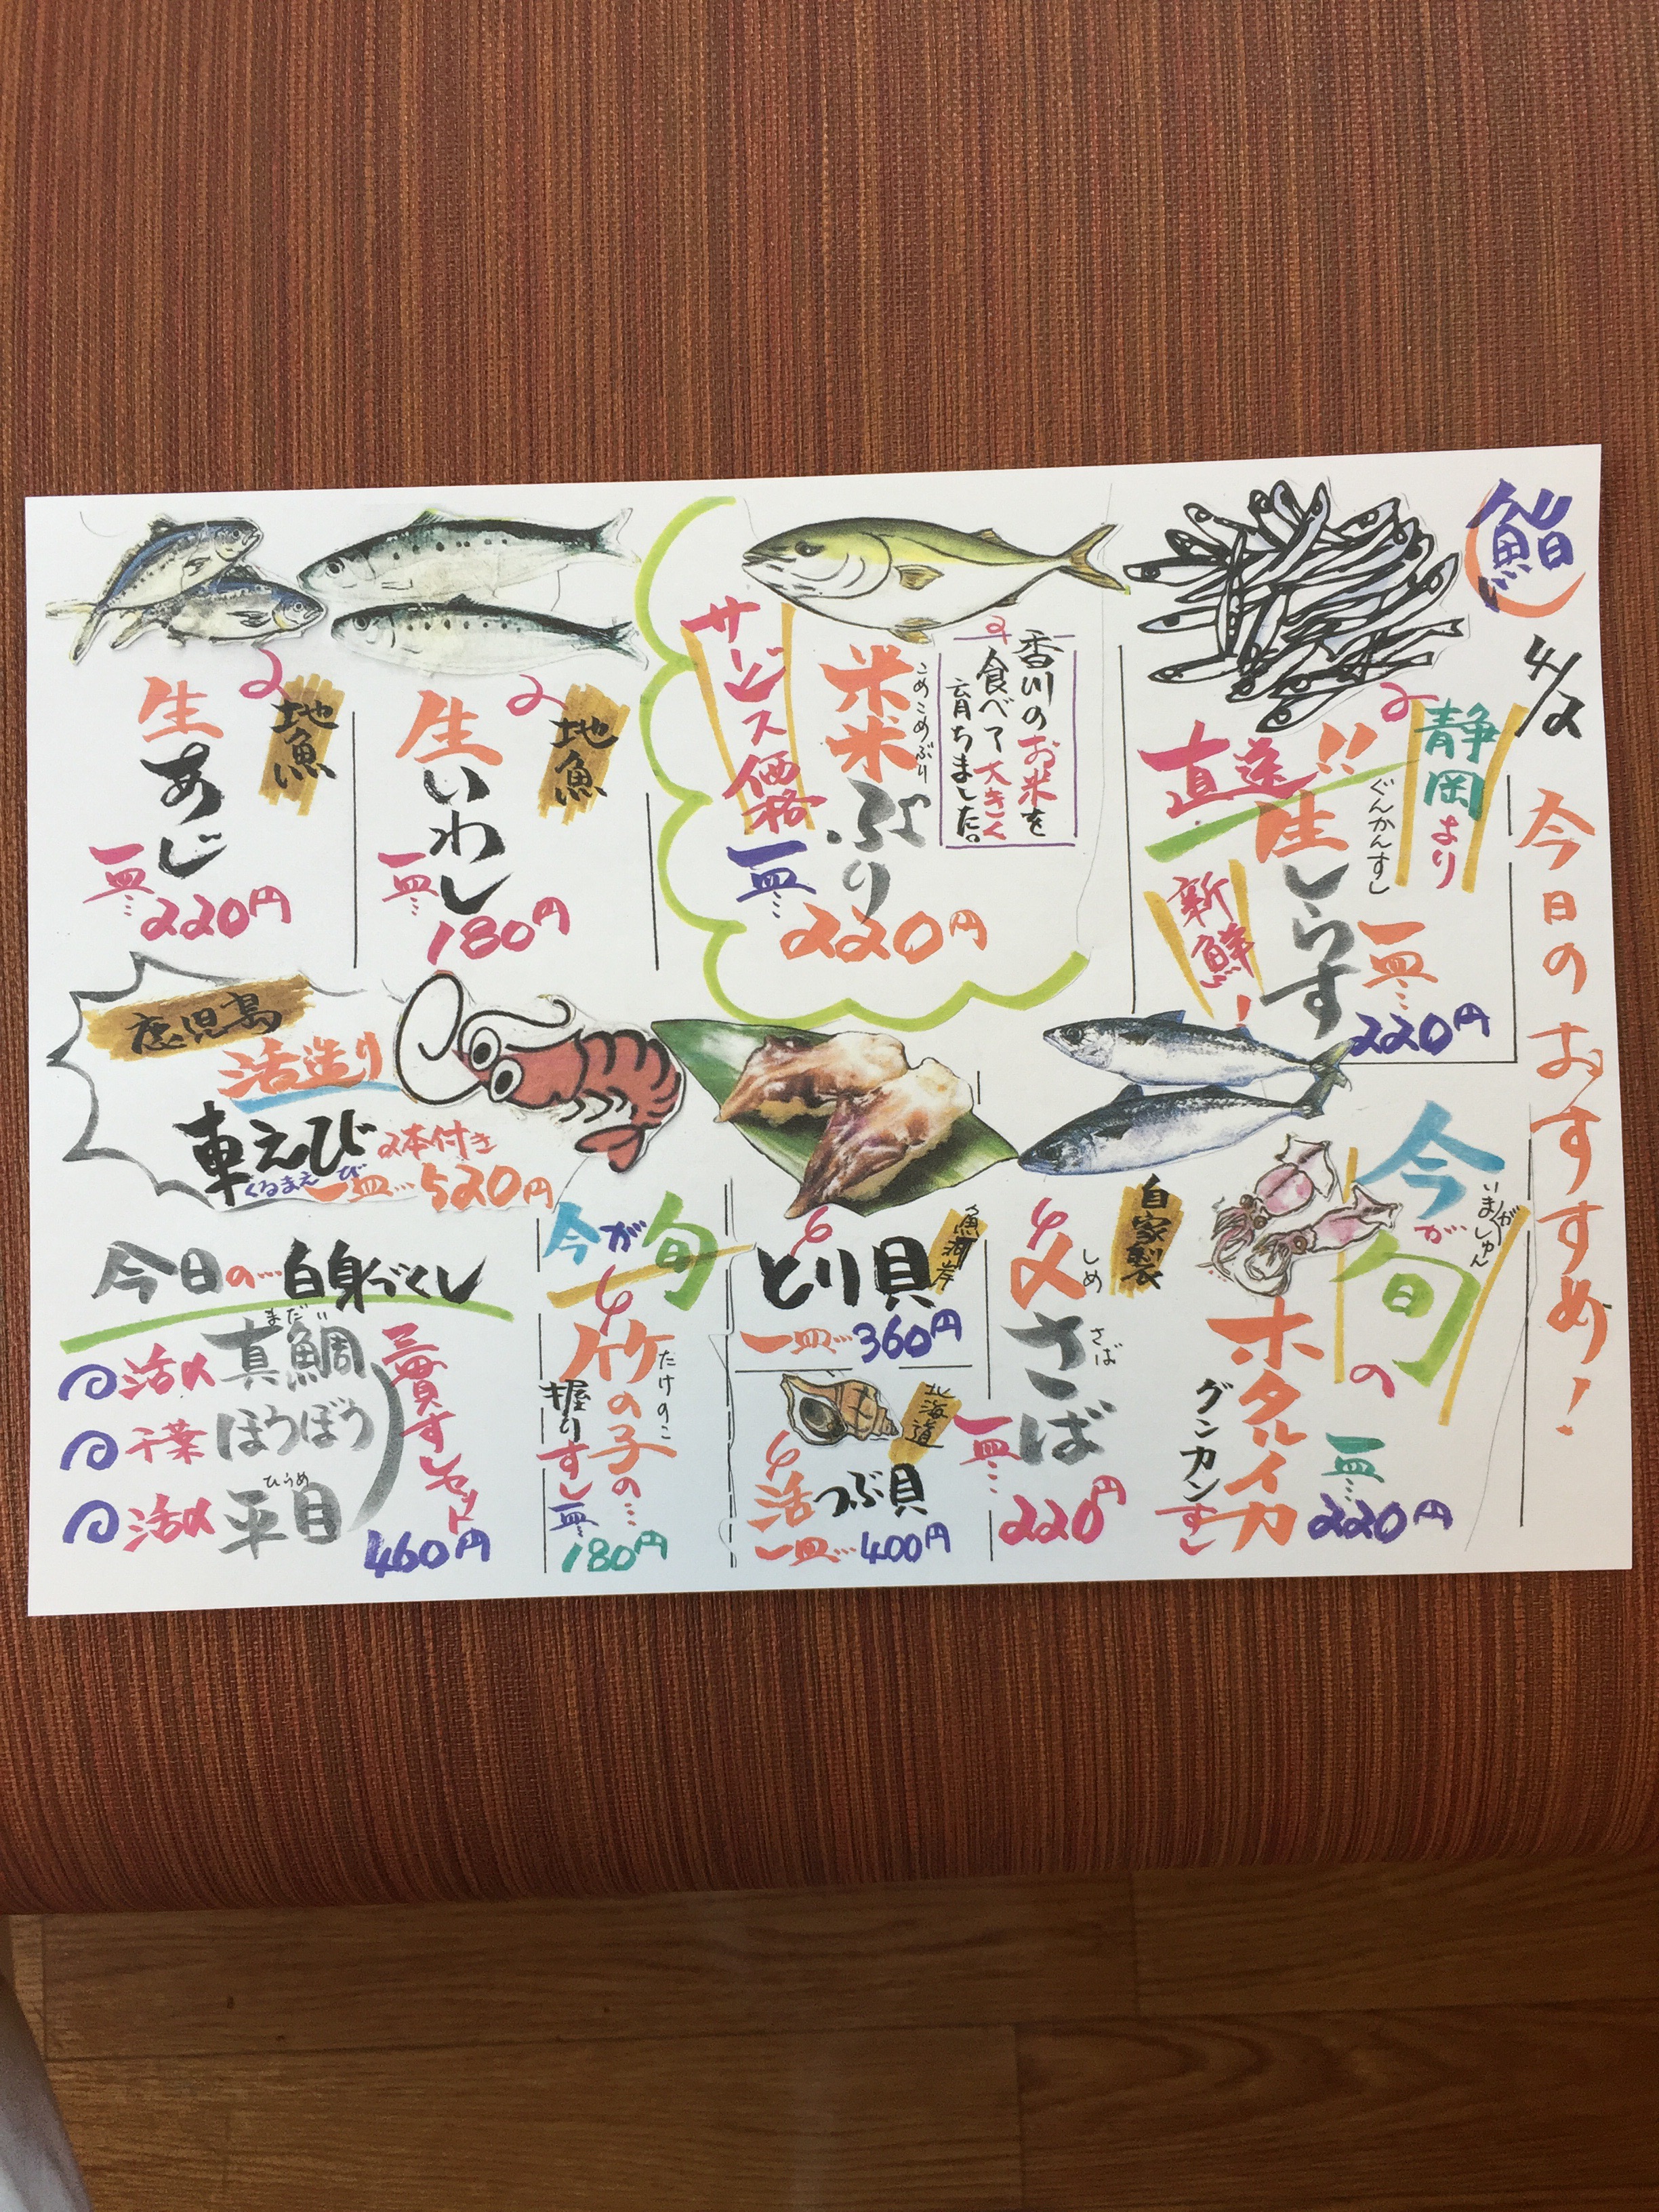 鮨
4/2
今日のおすすめ!
静岡より
直送!!
生しらす
ぐんかんすし
新鮮!
一皿…
220円
香川のお米を
食べて大きく
育ちました。
米米ぶり
こめこめぶり
サービス価格
一皿…
220円
地魚
生いわし
一皿…
180円
地魚
生あじ
一皿…
220円
今が旬の
いまがしゅん
ホタルイカ
グンカンすし
一皿…
220円
自家製
〆さば
しめ
さば
一皿…
220円
魚河岸
とり貝
一皿…360円
北海道
活つぶ貝
一皿…400円
鹿児島
活造り
車えび
くるまえび
2本付き
一皿…520円
今が旬
竹の子の…
たけのこ
握りすし
一皿…
180円
今日の…白身づくし
活〆真鯛
まだい
千葉ほうぼう
活〆平目
ひらめ
三貫すしセット
460円